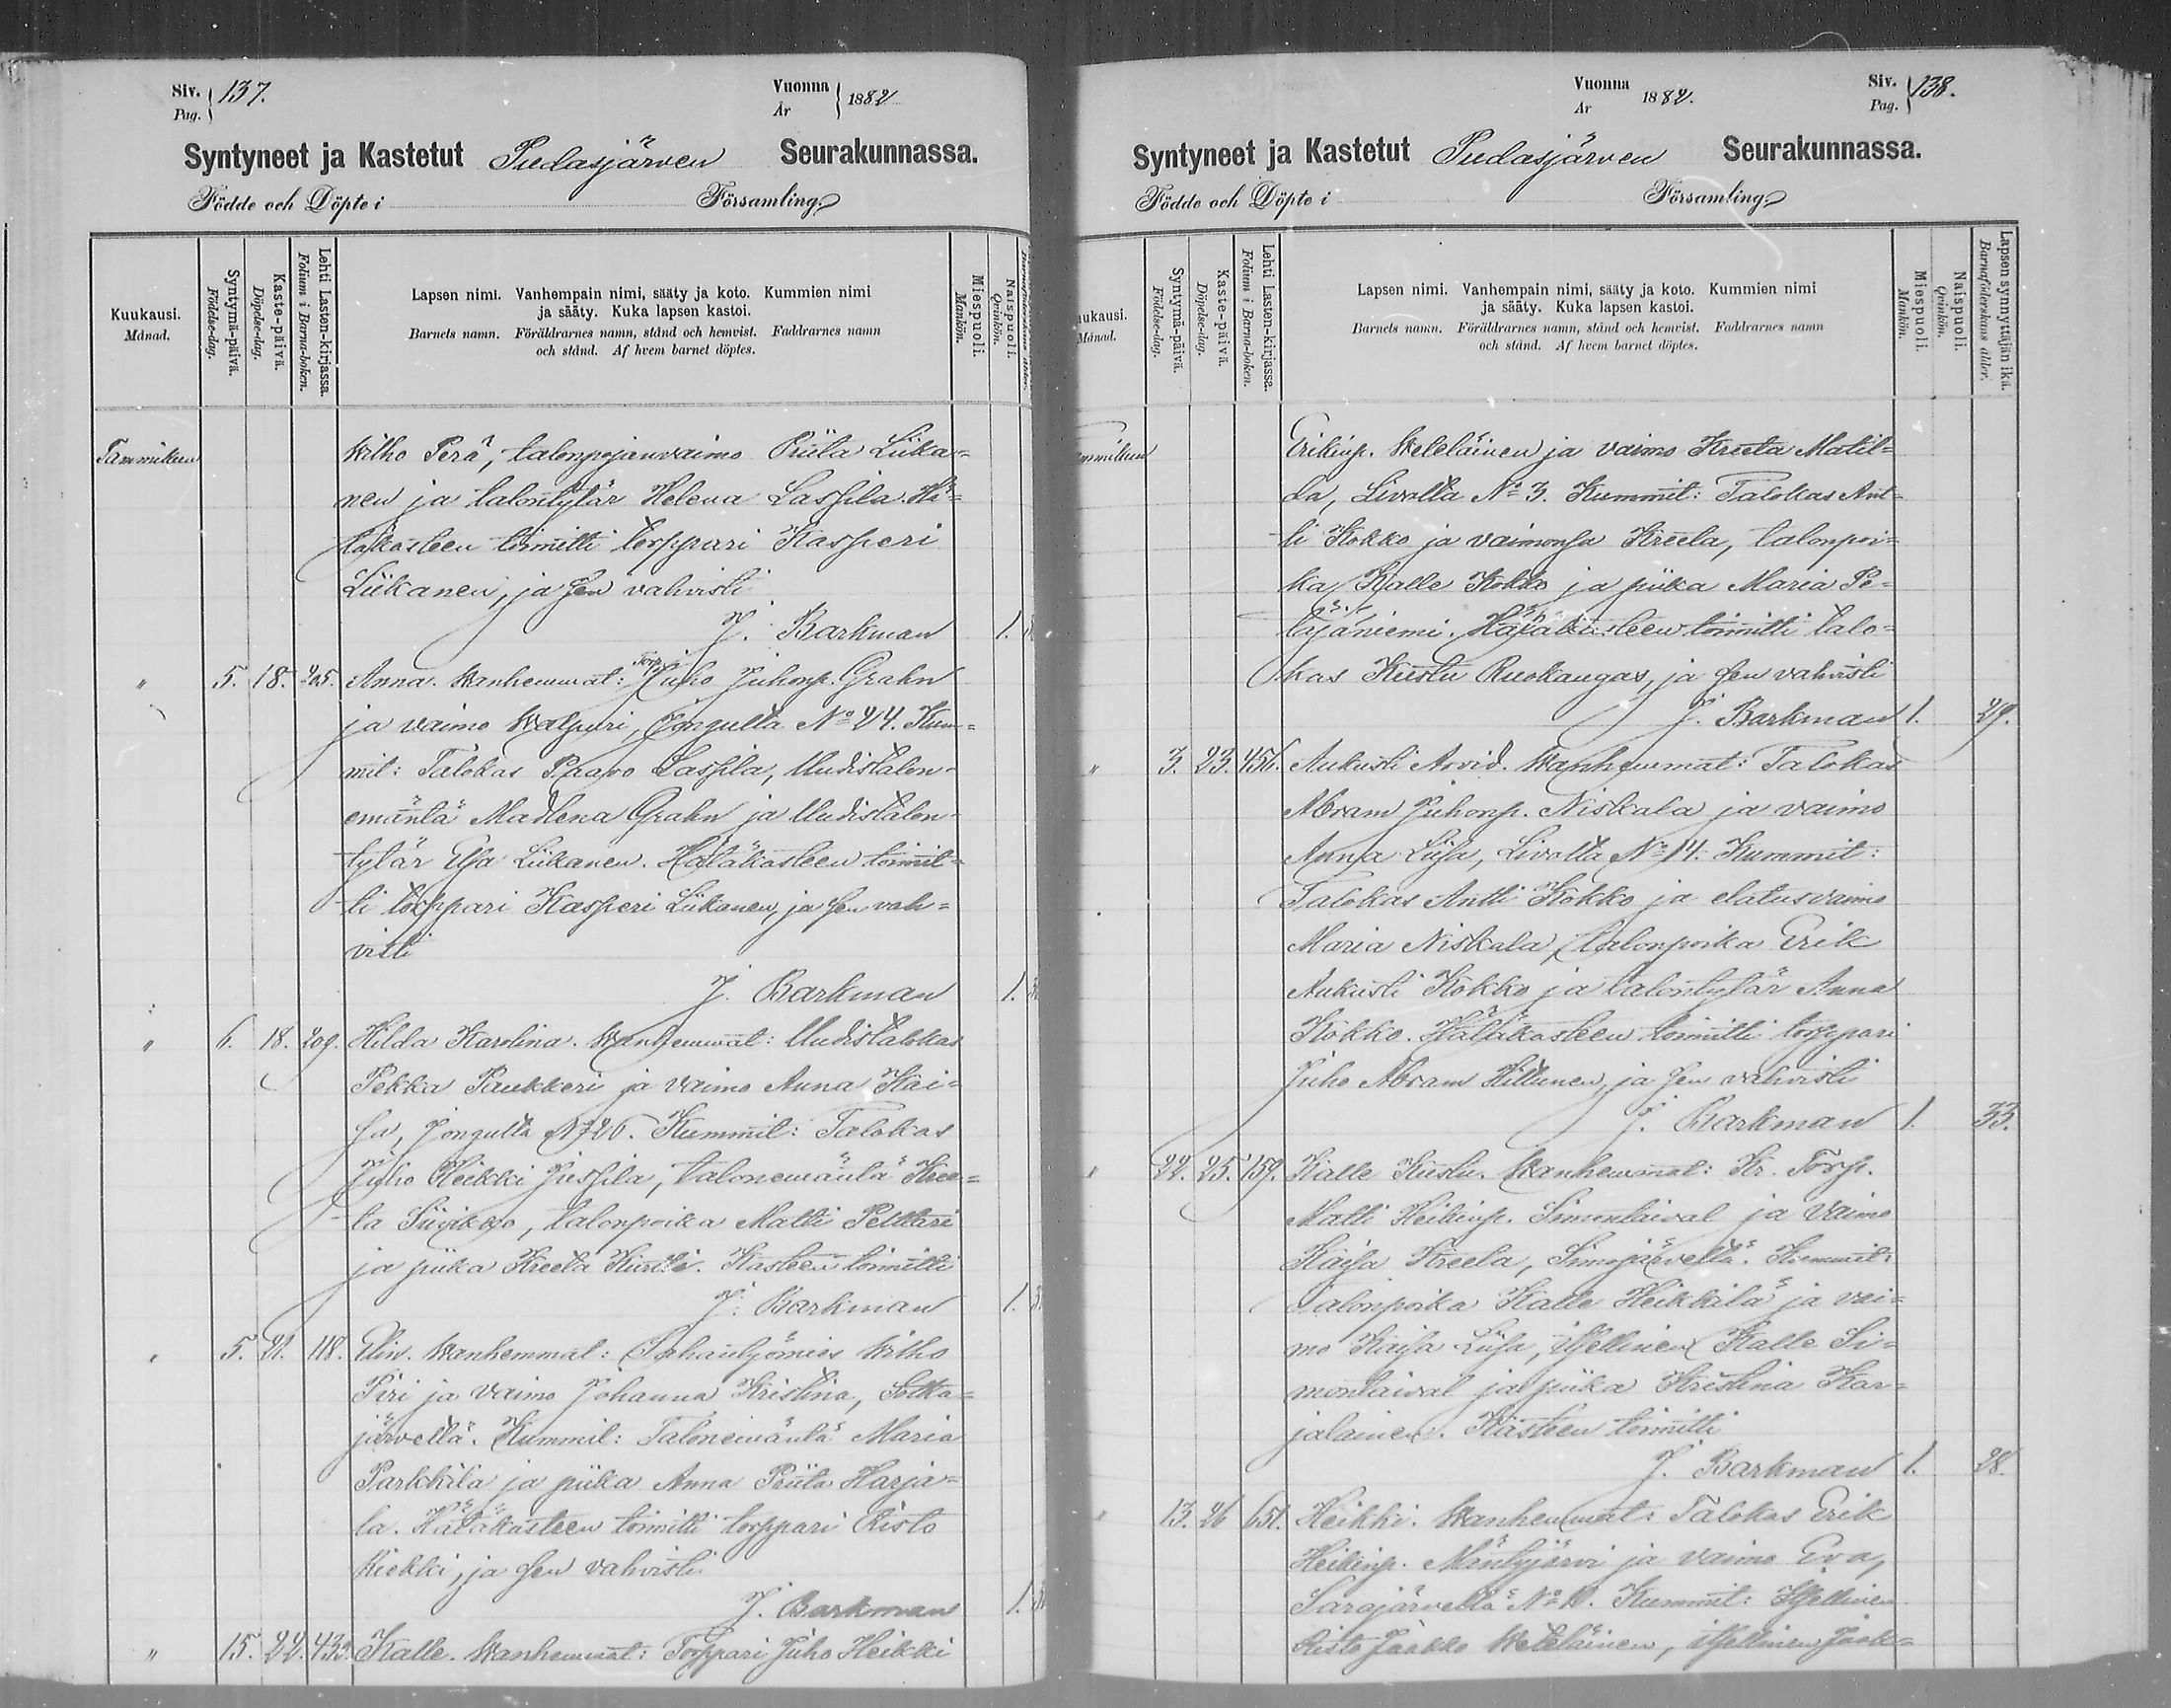 Siv. Pag. } 137.
Vuonna År } 1882
Syntyneet ja Kastetut Pudasjärven Seurakunnassa.
Födde och Döpte i Församling
Kuukausi. Månad.
Syntymä-päivä. Födelse-dag.
Kaste-päivä. Döpelse-dag.
Lehti Lasten-kirjassa. Folium i Barna-boken.
Lapsen nimi. Vanhempain nimi, sääty ja koto. Kummien nimi
ja sääty. Kuka lapsen kastoi.
Barnets namn. Föräldrarnes namn, stånd och hemvist. Faddrarnes namn
och stånd. Af hvem barnet döptes.
Miespuoli. Mankön.
Naispuoli. Qvinkön.
Tammikuu Wilho Perä, talonpojanvaimo Priita Liika-
nen ja talontytär Helena Laspila. Hä-
täkasteen toimitti torppari Kasperi
Liikanen, ja sen vahvisti
J. Barkman 1.
" 5. 18. 205. Anna. Wanhemmat: Torp. Juho Juhonp. Grahn
ja vaimo Walpuri, Jongulta No 24. Kum-
mit: Talokas Paavo Laspila, Uudistalon-
emäntä Madlena Grahn ja Uudistalon-
tytär Liikanen. Hätäkasteen toimit-
ti torppari Kasperi Liikanen, ja sen vah-
visti
J. Barkman 1.
" 6. 18. 209. Hilda Karolina. Wanhemmat: Uudistalokas
Pekka Paukkeri ja vaimo Anna Kai-
sa, Jongulta No 26. Kummit: Talokas
Juho Heikki Juspila, talonemäntä Kree-
ta Siivikko, talonpoika Matti Petteri
ja piika Kreeta. Kasteen toimitti
J. Barkman 1.
" 5. 21. 118. Elin. Wanhemmat: Sahantyömies Wilho
Piri ja vaimo Johanna Kristina, Sotka-
järveltä. Kummit: Talonemäntä Maria
Parkkila ja piika Anna Priita Harja-
la. Hätäkasteen toimitti torppari Risto
Kiekki, ja sen vahvisti
J. Barkman 1.
" 15. 22. 433. Kalle. Wanhemmat: Torppari Juho Heikki
Vuonna År 1882.
Siv. Pag. } 138.
Syntyneet ja Kastetut Pudasjärven Seurakunnassa.
Födde och Döpte i Församling
ukausi. Månad.
Syntymä-päivä. Födelse-dag.
Kaste-päivä. Döpelse-dag.
Lehti Lasten-kirjassa. Folium i Barna-boken.
Lapsen nimi. Vanhempain nimi, sääty ja koto. Kummien nimi
ja sääty. Kuka lapsen kastoi.
Barnets namn. Föräldrarnes namn, stånd och hemvist. Faddrarnes namn
och stånd. Af hvem barnet döptes.
Miespuoli. Mankön.
Naispuoli. Qvinkön.
Lapsen synnyttäjän ikä. Barnaföderskans ålder.
mmikuu Erikinp. Weteläinen ja vaimo Kreeta Matil-
da, Livolta No 3. Kummit: Talokas Ant-
ti Kokko ja vaimonsa Kreeta, talonpoi-
ka Kalle Kokko ja piika Maria Pe-
täjäniemi. Hätäkasteen toimitti talo-
kas Kustu Ruokangas, ja sen vahvisti
J. Barkman 1. 29.
" 3. 23. 456. Aukusti Arvid. Wanhemmat: Talokas
Abram Juhonp. Niskala ja vaimo
Anna Liisa, Livolta No 14. Kummit:
Talokas Antti Kokko ja elatusvaimo
Maria Niskala, talonpoika Erik
Aukusti Kokko ja talontytär Anna
Kokko. Hätäkasteen toimitti torppari
Juho Abram Hiltunen, ja sen vahvisti
J. Barkman 1. 33.
" 22. 25. 159. Kalle Kustu. Wanhemmat: Kr. Torp.
Matti Heikinp. Simontaival ja vaimo
Kaisa Kreeta, Simojärveltä. Kummit:
Talonpoika Kalle Heikkilä ja vai-
mo Kaisa Liisa, itsellinen Kalle Si-
montaival ja piika Kristina Kar-
jalainen. Kasteen toimitti
J. Barkman 1. 28.
" 13. 26 651. Heikki. Wanhemmat: Talokas Erik
Heikinp. Mäntyjärvi ja vaimo Eva,
Sarajärveltä No 10. Kummit: Itsellinen
Risto Jaakko Weteläinen, itsellinen Jaak-